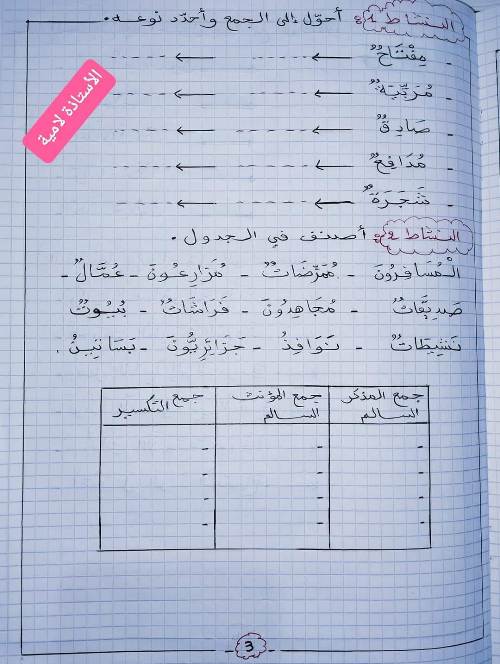 النشاط 1: أحوّل إلى الجمع وأحدّد نوعه.
- مِفْتَاحٌ ← ------ ← ------
الأستاذة لامية
- مُرَبِّيَةٌ ← ------ ← ------
- صَادِقٌ ← ------ ← ------
- مُدَافِعٌ ← ------ ← ------
- شَجَرَةٌ ← ------ ← ------
النشاط 2: أصنف في الجدول.
الْمُسَافِرُونَ - مُمَرِّضَاتٌ - مُزَارِعُونَ - عُمَّالٌ -
صَدِيقَاتٌ - مُجَاهِدُونَ - فَرَاشَاتٌ - بُيُوتٌ
نَشِيطَاتٌ - نَوَافِذُ - جَزَائِرِيُّونَ - بَسَاتِينُ.
جمع المذكر السالم | جمع المؤنث السالم | جمع التكسير
- | - | -
- | - | -
- | - | -
- | - | -
- 3 -